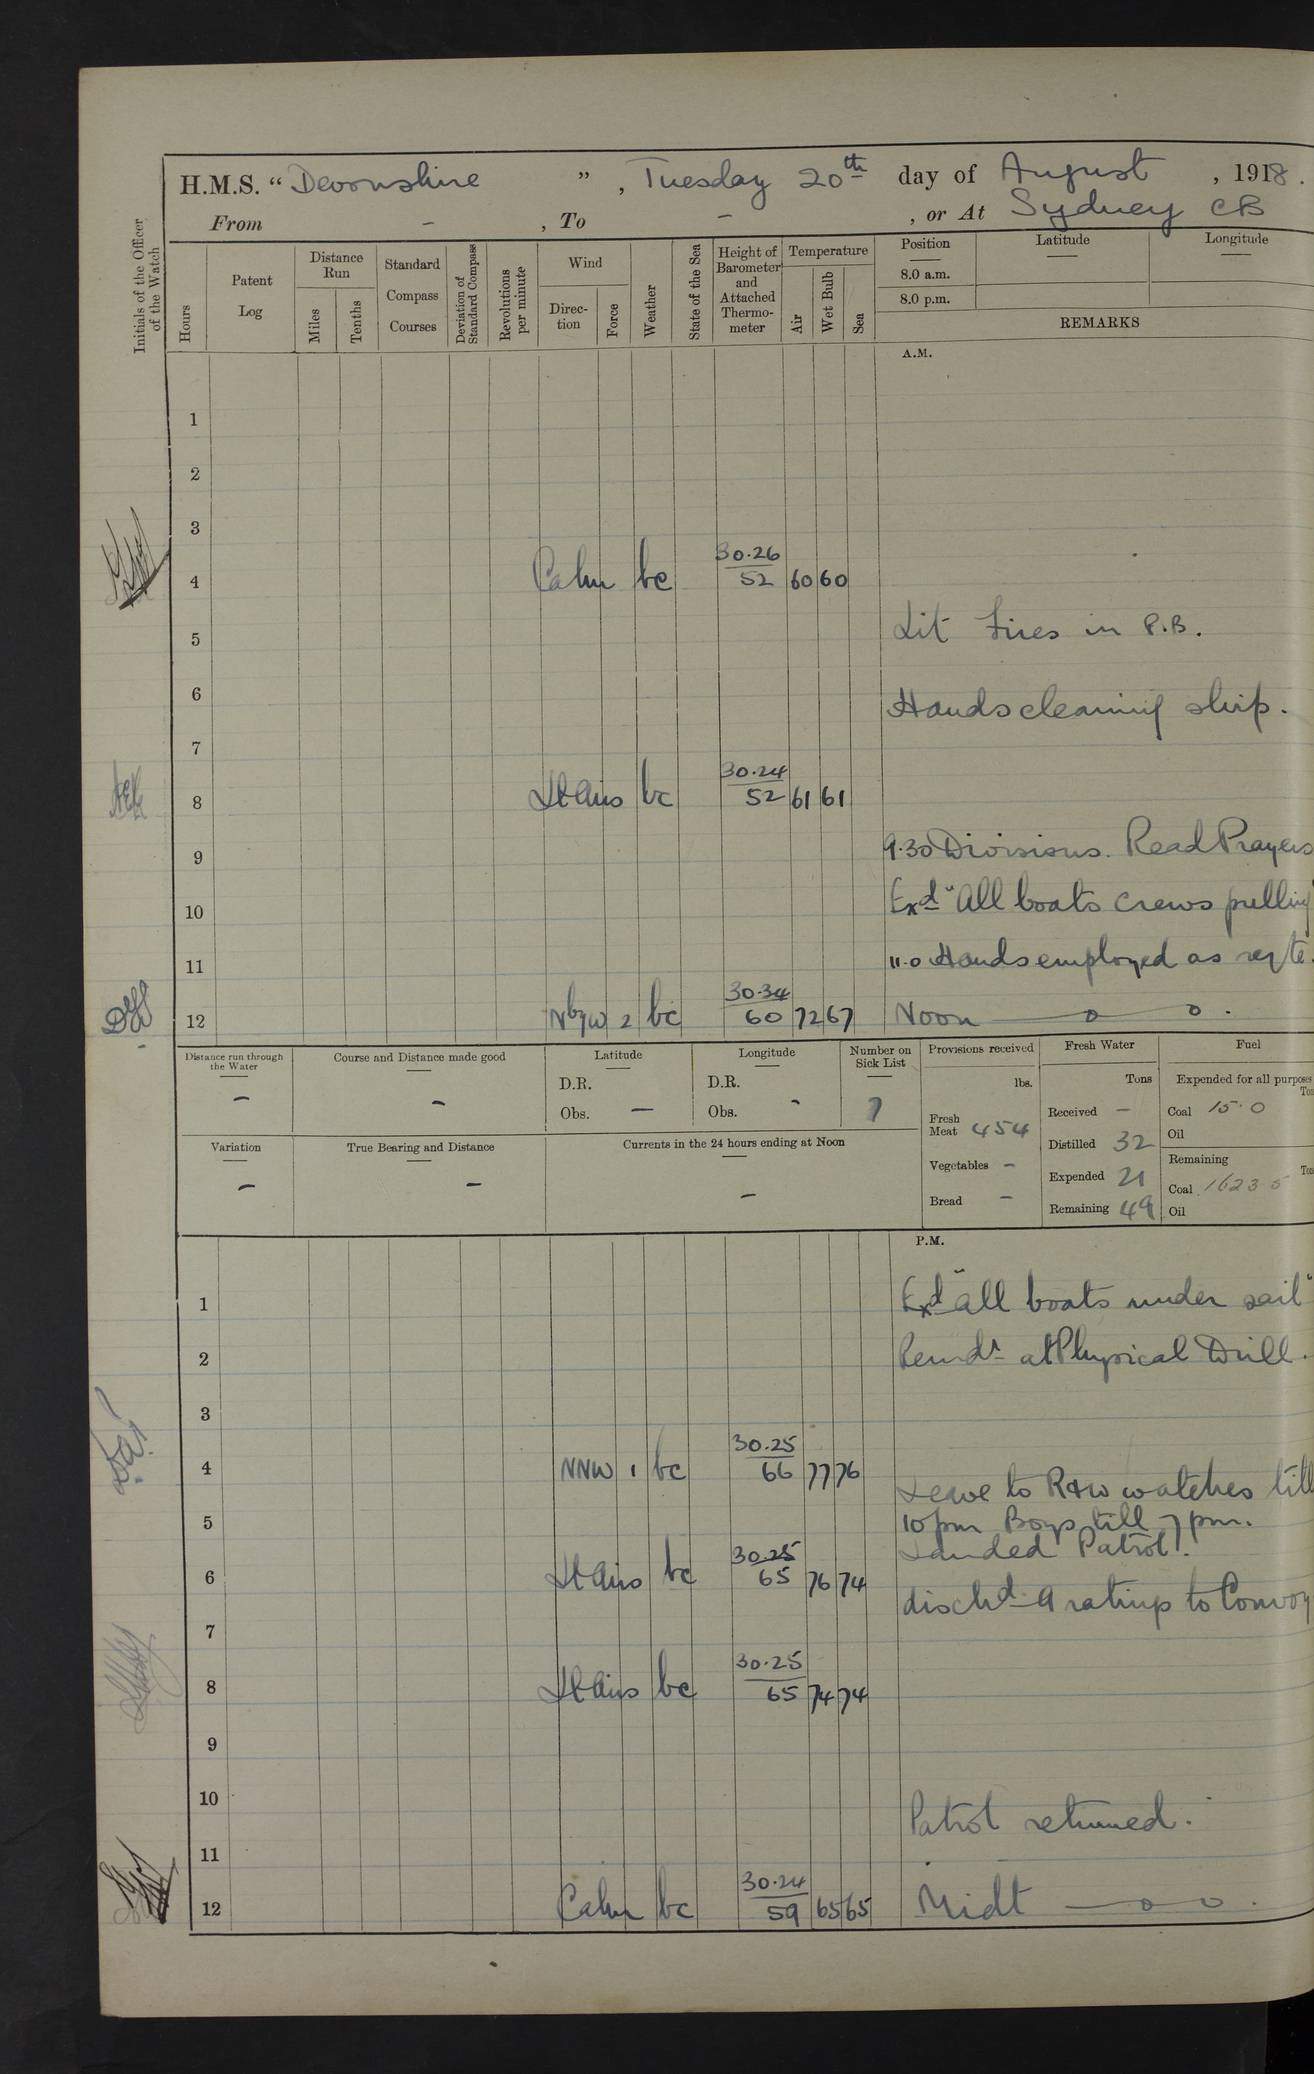 H.M.S. “ Devonshire ” , Tuesday 20th day of August , 1918.
From - , To - , or At Sydney CB
Initials of the Officer of the Watch
Hours
Patent Log
Distance Run
Miles
Tenths
Standard Compass Courses
Deviation of Standard Compass
Revolutions per minute
Wind
Direc- tion
Force
Weather
State of the Sea
Height of Barometer and Attached Thermo- meter
Temperature
Air
Wet Bulb
Sea
Position
8.0 a.m.
8.0 p.m.
Latitude
Longitude
REMARKS
A.M.
1
2
3
4 Calm bc 30.26 52 60 60
Lit Fires in P.B.
5
6
Hands cleaning ship.
7
8 Lt Airs bc 30.24 52 61 61
9 9.30 Divisions. Read Prayers
10 Exd "All boats crews pulling
11 11.0 Hands employed as reqte.
12 NbyW 2 bc 30.34 60 72 67 Noon
Distance run through the Water -
Course and Distance made good -
Latitude
D.R.
Obs. -
Longitude
D.R.
Obs. -
Number on Sick List 7
Variation -
True Bearing and Distance -
Currents in the 24 hours ending at Noon -
Provisions received
lbs.
Fresh Meat 454
Vegetables -
Bread -
Fresh Water
Tons
Received -
Distilled 32
Expended 21
Remaining 49
Fuel
Expended for all purposes
Coal 15.0
Oil
Remaining
Coal 1623.5
Oil
P.M.
1 Exd "all boats under sail"
2 Remdr at Physical Drill.
3
4 NNW 1 bc 30.25 66 77 76
Leave to R&W watches till
5 10 pm Boys till 7 pm.
Landed Patrol.
6 Lt Airs bc 30.25 65 76 74
dischd 9 ratings to Convoy
7
8 Lt Airs bc 30.25 65 74 74
9
10
Patrol returned.
11
12 Calm bc 30.24 59 65 65 Midt